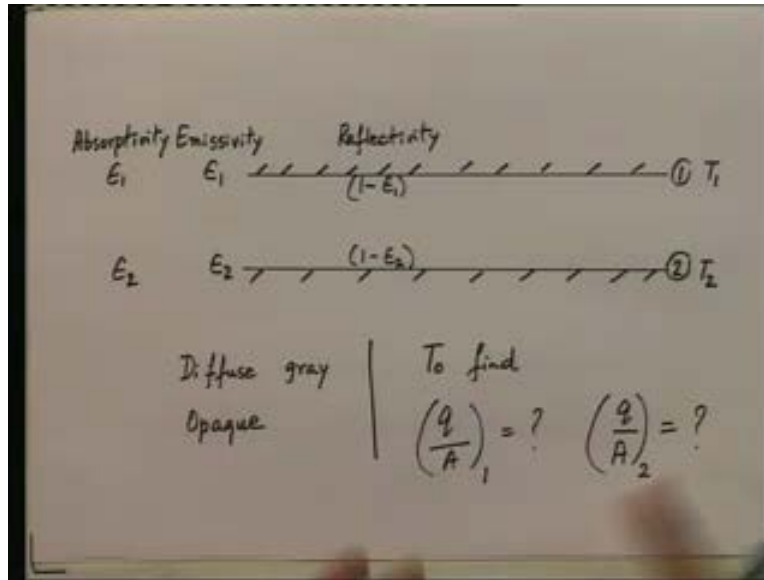 Absorptivity Emissivity Reflectivity
ϵ₁ ϵ₁ (1-ϵ₁) ① T₁
ϵ₂ ϵ₂ (1-ϵ₂) ② T₂
Diffuse gray To find
Opaque (q/A)₁ = ? (q/A)₂ = ?